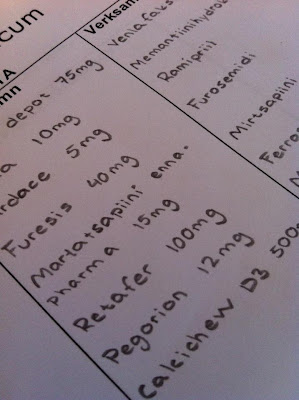 cum
Verksam
mn
depot 75mg
Venlafaks
a 10mg
Memantiinihydro
rdace 5mg
Ramipril
Furesis 40mg
Furosemidi
Martatsapiini enna-
pharma 15mg
Mirtsapiini
Retafer 100mg
Ferro
Pegorion 12mg
M
Calcichew D3 500